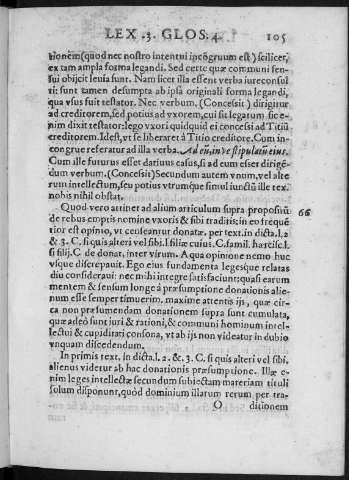 LEX .3. GLOS. 4. 105
tionẽm(quod nec nostro intentui incõgruum est) scilicet,
ex tam ampla forma legandi. Sed certe quæ communi sen-
sui obijcit leuia sunt. Nam licet illa essent verba iureconsul
ti: sunt tamen desumpta ab ipsà originali forma legandi,
qua vsus fuit testator. Nec verbum. (Concessit) dirigitur
ad creditorem, sed potius ad vxorem, cui sit legatum sic e-
nim dixit testator: lego vxori quidquid ei concessi ad Titiũ
creditorem. Idest, vt se liberaret à Titio creditore. Cum in-
congrue referatur ad illa verba. Ad eũ, in ve stipulatũ eius.
Cum ille futurus esset datiuus casus, si ad eum esset dirigẽ-
dum verbum. (Concessit) Secundum autem vnum, vel alte
rum intellectum, seu potius vtrumque simul iunctũ ille tex.
nobis nihil obstat.
Quod vero attinet ad alium articulum supra propositũ 66
de rebus emptis nomine vxoris & sibi traditis: in eo frequẽ
tior est opinio, vt censeantur donatæ. per text. in dicta. l. 2
& 3. C. si quis alteri vel sibi. l filiæ cuius. C. famil. hærcisc. l.
si filij. C. de donat. inter virum. A qua opinione nemo huc
vsque discrepauit. Ego eius fundamenta legesque relatas
diu consideraui: nec mihi integre satisfaciunt: quasi earum
mentem & sensum longe à præsumptione donationis alie-
num esse semper timuerim. maxime attentis ijs, quæ cir-
ca non præsumendam donationem supra sunt cumulata,
quæ adeò sunt iuri & rationi, & communi hominum intel-
lectui & cupiditati consona, vt ab ijs non videatur in dubio
vnquam discedendum.
In primis text. in dicta. l. 2. & .3. C. si quis alteri vel sibi.
alienus videtur ab hac donationis præsumptione. Illæ e-
nim leges intellectæ secundum subiectam materiam tituli
solum disponunt, quòd dominium illarum rerum per tra-
O ditionem